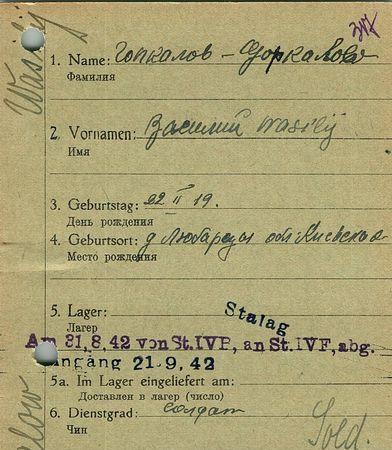 Wasilij
1. Name: Гопкалов - Gopkalow
Фамилия
2. Vornamen: Василий Wasilij
Имя
3. Geburtstag: 22 II 19.
День рождения
4. Geburtsort: д Любарцы обл Киевская
Место рождения
5. Lager: Stalag
Лагер
Am 31.8.42 von St.IVB, an St.IVF, abg.
ingang 21.9.42
5a. Im Lager eingeliefert am:
Доставлен в лагер (число)
6. Dienstgrad: солдат
Чин Sold.